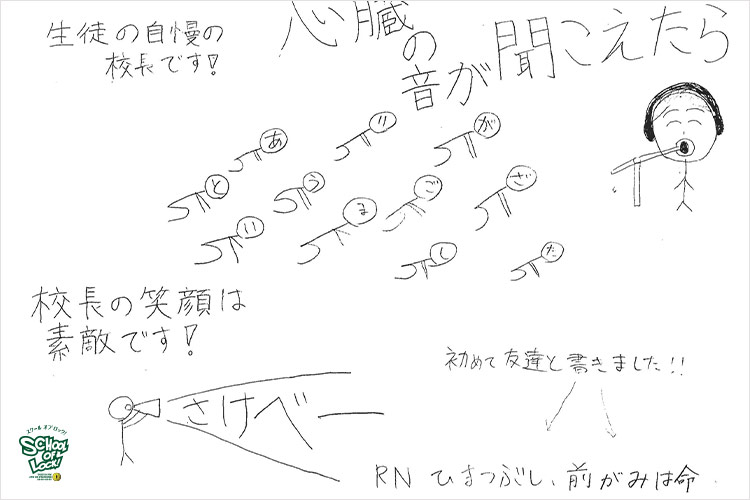 生徒の自慢の
校長です!
心臓の音が聞こえたら
あ り が
と う ご ざ
い ま し た
校長の笑顔は
素敵です!
さけべー
初めて友達と書きました!!
RN ひまつぶし、前がみは命
スクール オブ ロック!
SCHOOL
OF
LOCK!